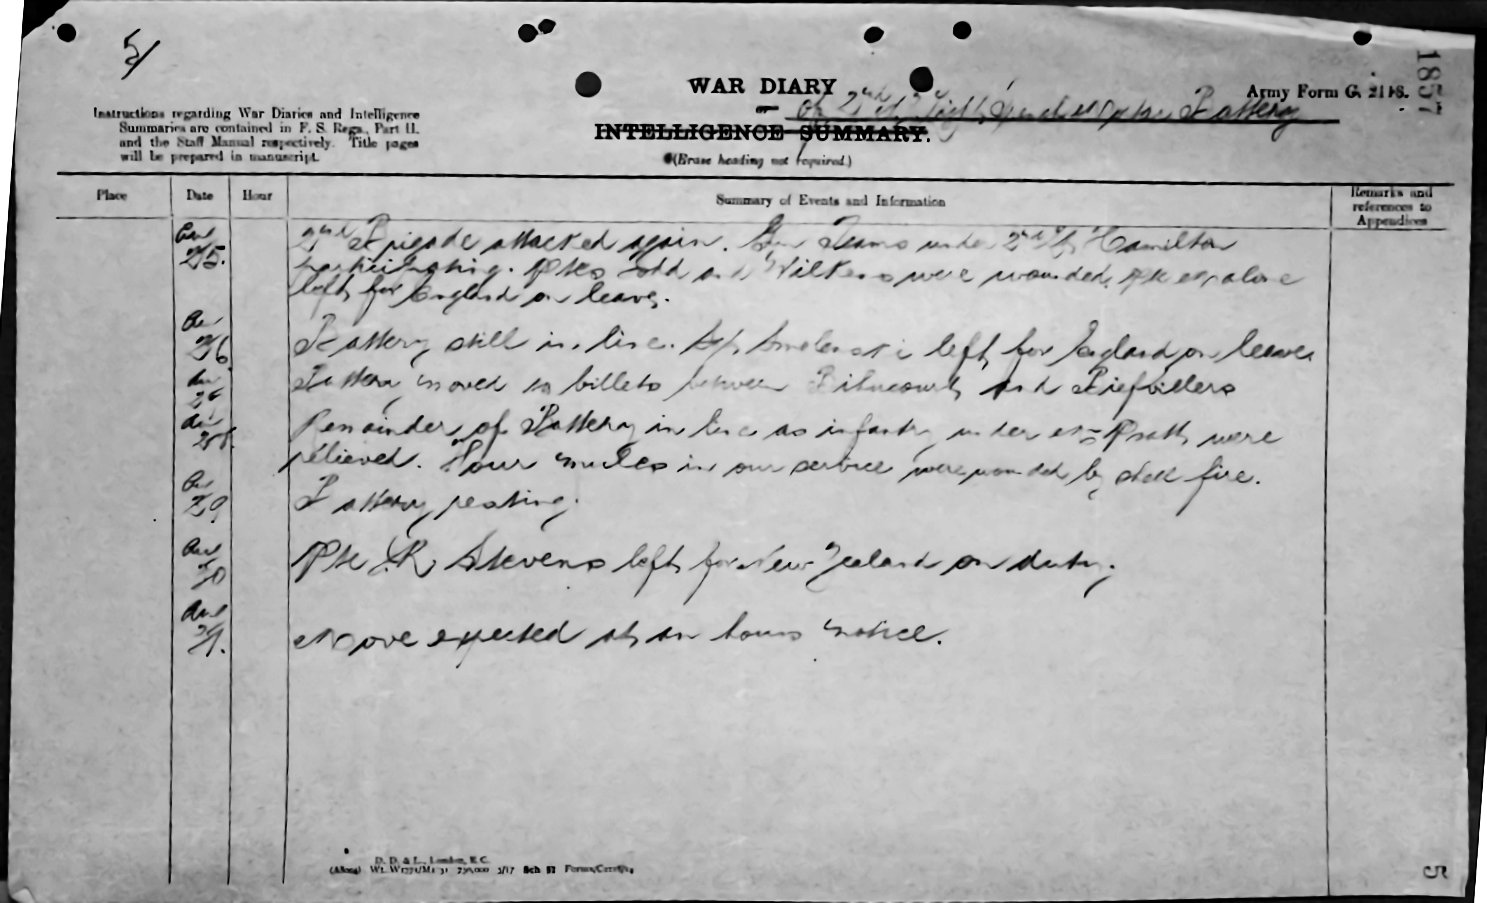 5/
WAR DIARY
or
of 2nd N.Z. Light Trench Mortar Battery
INTELLIGENCE SUMMARY.
(Erase heading not required.)
Army Form C. 2118.
1857
Instructions regarding War Diaries and Intelligence
Summaries are contained in F. S. Regs., Part II.
and the Staff Manual respectively. Title pages
will be prepared in manuscript.
Place
Date
Hour
Summary of Events and Information
Remarks and
references to
Appendices
Aug 25. 2nd Brigade attacked again. Gun Teams under 2nd Lt Hamilton
participating. Ptes Todd and Wilkens were wounded. Pte
left for England on leave.
26 Battery still in line. left for England on leave
Battery moved to billets between Bihucourt and Biefvillers
28. Remainder of Battery in line as infantry under Pratt were
relieved. Four mules in our service were wounded by shell fire.
29 Battery resting.
Aug 30 Pte J.R. Stevens left for New Zealand on duty.
Aug 31. Move expected at an hours notice.
D. D. & L., London, E.C.
Sch 52
5